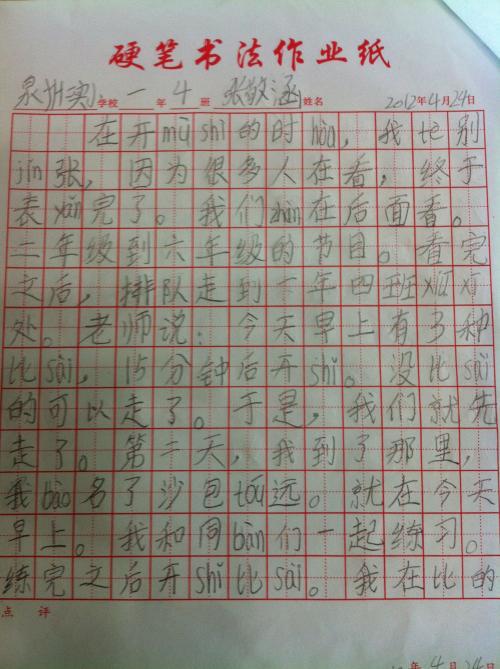 硬笔书法作业纸
泉州实小学校一年4班张敬涵姓名 2012年4月24日
在开mù shì的时hòu，我te别
jǐn张，因为很多人在看，终于
表yǎn完了。我们zhàn在后面看。
二年级到六年级的节目。看完
之后，排队走到一年四班xiū xi
处。老师说：今天早上有多种
比sài，15分钟后开shǐ。没比sài
的可以走了。于是，我们就先
走了。第二天，我到了那里，
我bào名了沙包tóu远。就在今天
早上。我和同bàn们一起练习。
练完之后开shǐ比sài。我在比的
点 评
年4月24日